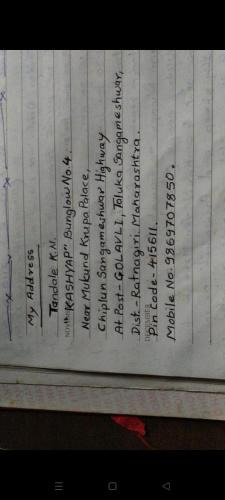 My Address
Tandale K.N.
"KASHYAP" Bunglow No. 4.
Near Mukund Krupa Palace,
Chiplun Sangameshwar Highway
At Post - GOLAVLI, Taluka Sangameshwar,
Dist. - Ratnagiri. Maharashtra.
Pin Code - 415611.
Mobile No. 9869707850.